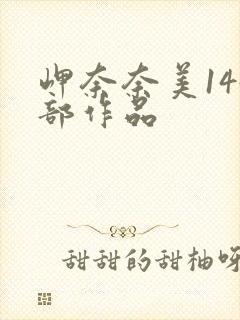 岬奈奈美14
部作品
甜甜的甜柚呀